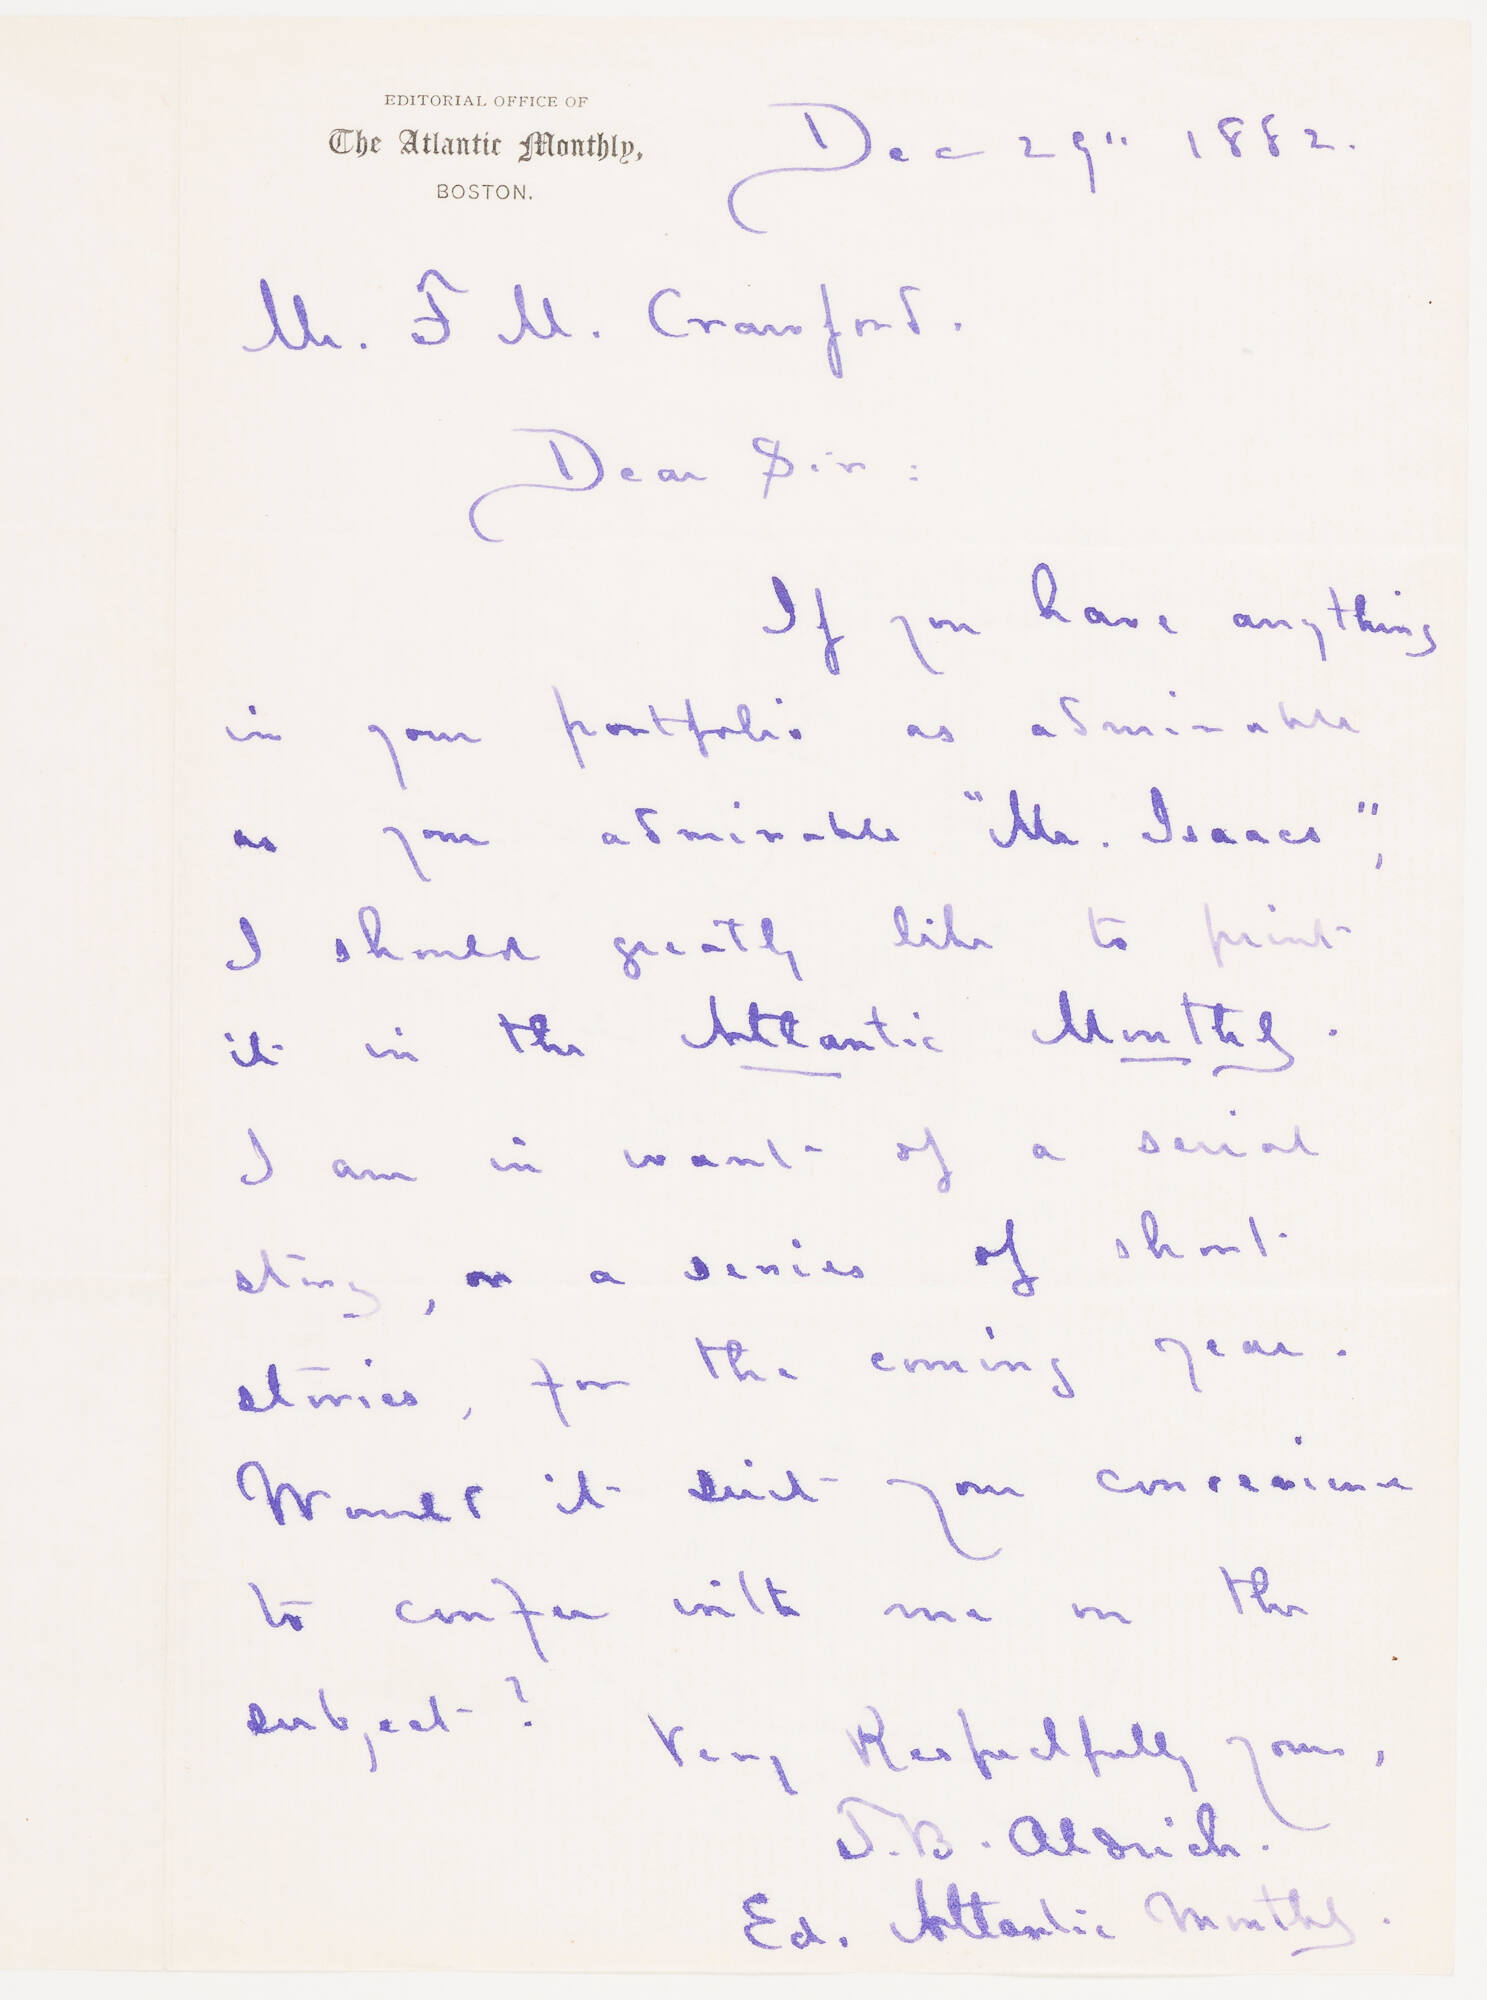 EDITORIAL OFFICE OF
The Atlantic Monthly,
BOSTON.
Dec 29" 1882.
Mr. F M. Crawford.
Dear Sir:
If you have anything
in your portfolio as admirable
as your admirable "Mr. Isaacs",
I should greatly like to print
it in the Atlantic Monthly.
I am in want of a serial
story, or a series of short
stories, for the coming year.
Would it suit your convenience
to confer with me on the
subject?
Very Respectfully yours,
T.B. Aldrich.
Ed. Atlantic Monthly.